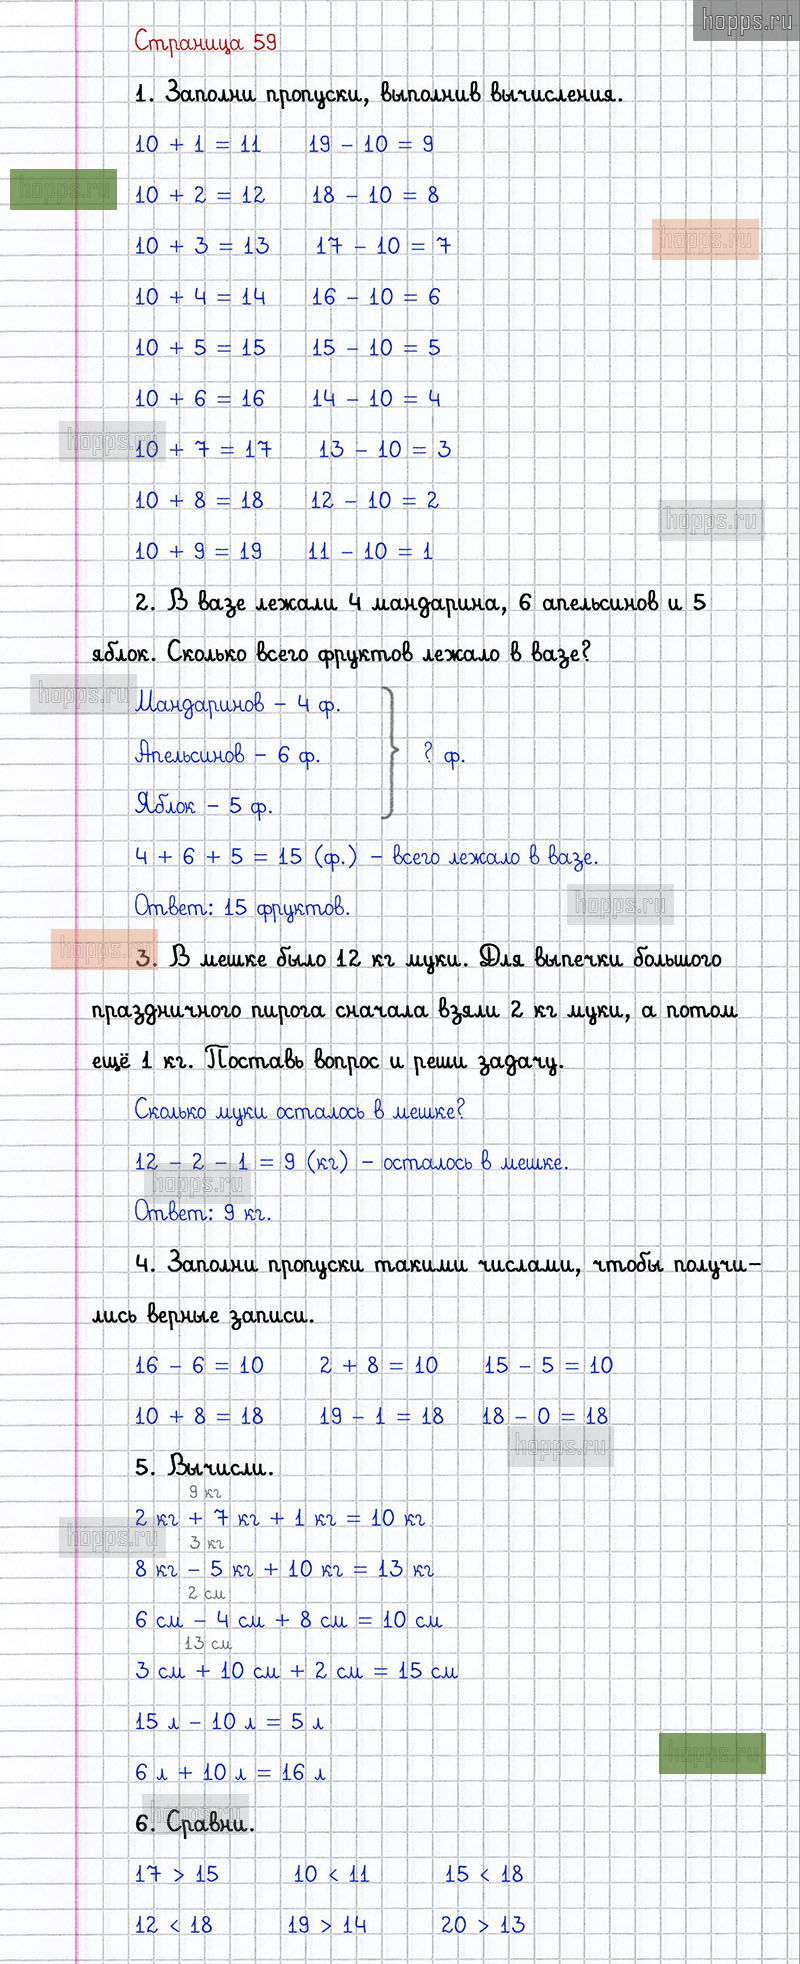 hopps.ru
Страница 59
1. Заполни пропуски, выполнив вычисления.
10 + 1 = 11 19 - 10 = 9
hopps.ru
10 + 2 = 12 18 - 10 = 8
hopps.ru
10 + 3 = 13 17 - 10 = 7
10 + 4 = 14 16 - 10 = 6
10 + 5 = 15 15 - 10 = 5
10 + 6 = 16 14 - 10 = 4
hopps.ru
10 + 7 = 17 13 - 10 = 3
10 + 8 = 18 12 - 10 = 2
hopps.ru
10 + 9 = 19 11 - 10 = 1
2. В вазе лежали 4 мандарина, 6 апельсинов и 5
яблок. Сколько всего фруктов лежало в вазе?
hopps.ru
Мандаринов - 4 ф.
Апельсинов - 6 ф. ? ф.
Яблок - 5 ф.
4 + 6 + 5 = 15 (ф.) - всего лежало в вазе.
Ответ: 15 фруктов.
hopps.ru
hopps.ru
3. В мешке было 12 кг муки. Для выпечки большого
праздничного пирога сначала взяли 2 кг муки, а потом
ещё 1 кг. Поставь вопрос и реши задачу.
Сколько муки осталось в мешке?
12 - 2 - 1 = 9 (кг) - осталось в мешке.
hopps.ru
Ответ: 9 кг.
4. Заполни пропуски такими числами, чтобы получи-
лись верные записи.
16 - 6 = 10 2 + 8 = 10 15 - 5 = 10
10 + 8 = 18 19 - 1 = 18 18 - 0 = 18
hopps.ru
5. Вычисли.
9 кг
2 кг + 7 кг + 1 кг = 10 кг
hopps.ru
3 кг
8 кг - 5 кг + 10 кг = 13 кг
2 см
6 см - 4 см + 8 см = 10 см
13 см
3 см + 10 см + 2 см = 15 см
15 л - 10 л = 5 л
hopps.ru
6 л + 10 л = 16 л
hopps.ru
6. Сравни.
17 > 15 10 < 11 15 < 18
12 < 18 19 > 14 20 > 13